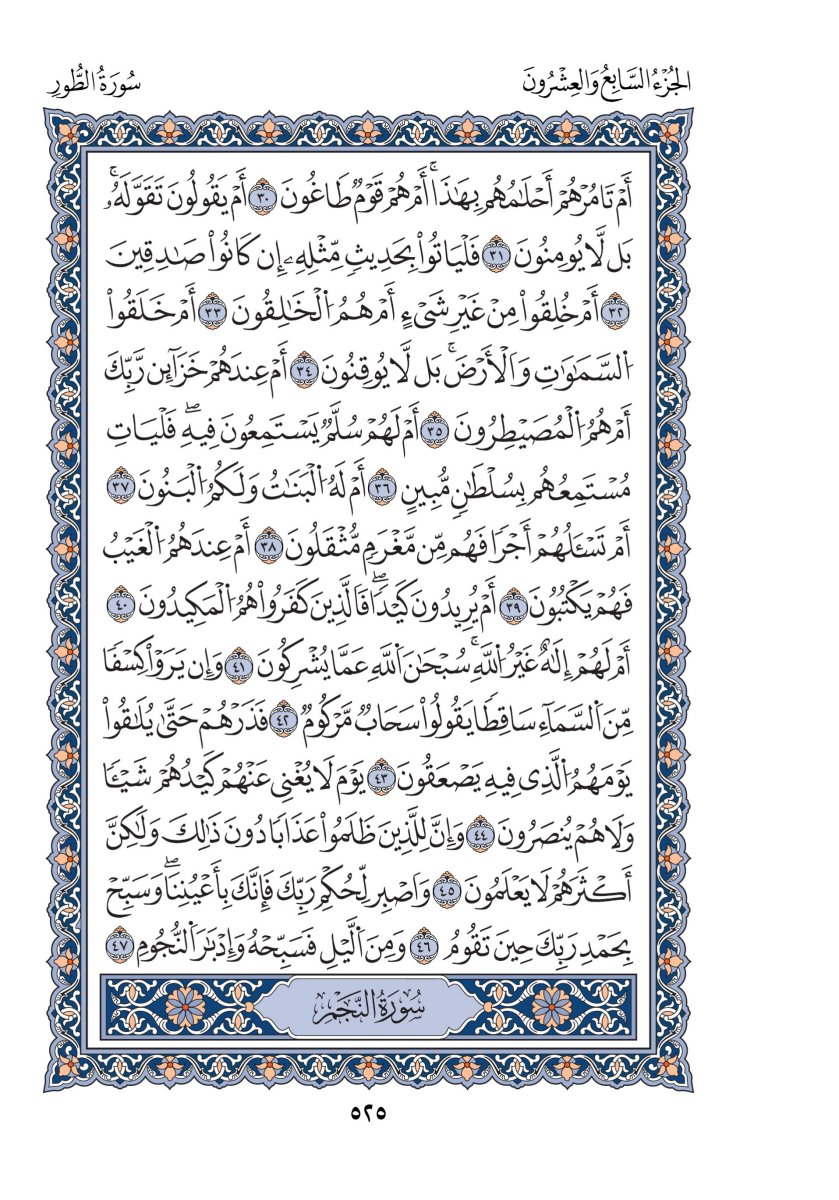 الجُزْءُ السَّابِعُ وَالعِشْرُونَ
سُورَةُ الطُّورِ
أَمْ تَامُرُهُمْ أَحْلَٰمُهُم بِهَٰذَاۚ أَمْ هُمْ قَوْمٌ طَاغُونَ ٣٠ أَمْ يَقُولُونَ تَقَوَّلَهُۥۚ
بَل لَّا يُومِنُونَ ٣١ فَلْيَاتُوا۟ بِحَدِيثٍ مِّثْلِهِۦ إِن كَانُوا۟ صَٰدِقِينَ
٣٢ أَمْ خُلِقُوا۟ مِنْ غَيْرِ شَىْءٍ أَمْ هُمُ ٱلْخَٰلِقُونَ ٣٣ أَمْ خَلَقُوا۟
ٱلسَّمَٰوَٰتِ وَٱلْأَرْضَۚ بَل لَّا يُوقِنُونَ ٣٤ أَمْ عِندَهُمْ خَزَآئِن رَّبِّكَ
أَمْ هُمُ ٱلْمُصَيْطِرُونَ ٣٥ أَمْ لَهُمْ سُلَّمٌ يَسْتَمِعُونَ فِيهِۖ فَلْيَاتِ
مُسْتَمِعُهُم بِسُلْطَٰنٍ مُّبِينٍ ٣٦ أَمْ لَهُ ٱلْبَنَٰتُ وَلَكُمُ ٱلْبَنُونَ ٣٧
أَمْ تَسْـَٔلُهُمْ أَجْرًا فَهُم مِّن مَّغْرَمٍ مُّثْقَلُونَ ٣٨ أَمْ عِندَهُمُ ٱلْغَيْبُ
فَهُمْ يَكْتُبُونَ ٣٩ أَمْ يُرِيدُونَ كَيْدًاۖ فَٱلَّذِينَ كَفَرُوا۟ هُمُ ٱلْمَكِيدُونَ ٤٠
أَمْ لَهُمْ إِلَٰهٌ غَيْرُ ٱللَّهِۚ سُبْحَٰنَ ٱللَّهِ عَمَّا يُشْرِكُونَ ٤١ وَإِن يَرَوْا۟ كِسْفًا
مِّنَ ٱلسَّمَآءِ سَاقِطًا يَقُولُوا۟ سَحَابٌ مَّرْكُومٌ ٤٢ فَذَرْهُمْ حَتَّىٰ يُلَٰقُوا۟
يَوْمَهُمُ ٱلَّذِى فِيهِ يَصْعَقُونَ ٤٣ يَوْمَ لَا يُغْنِى عَنْهُمْ كَيْدُهُمْ شَيْـًٔا
وَلَا هُمْ يُنصَرُونَ ٤٤ وَإِنَّ لِلَّذِينَ ظَلَمُوا۟ عَذَابًا دُونَ ذَٰلِكَ وَلَٰكِنَّ
أَكْثَرَهُمْ لَا يَعْلَمُونَ ٤٥ وَٱصْبِر لِّحُكْمِ رَبِّكَ فَإِنَّكَ بِأَعْيُنِنَاۖ وَسَبِّحْ
بِحَمْدِ رَبِّكَ حِينَ تَقُومُ ٤٦ وَمِنَ ٱلَّيْلِ فَسَبِّحْهُ وَإِدْبَٰرَ ٱلنُّجُومِ ٤٧
سُورَةُ النَّجْمِ
٥٢٥